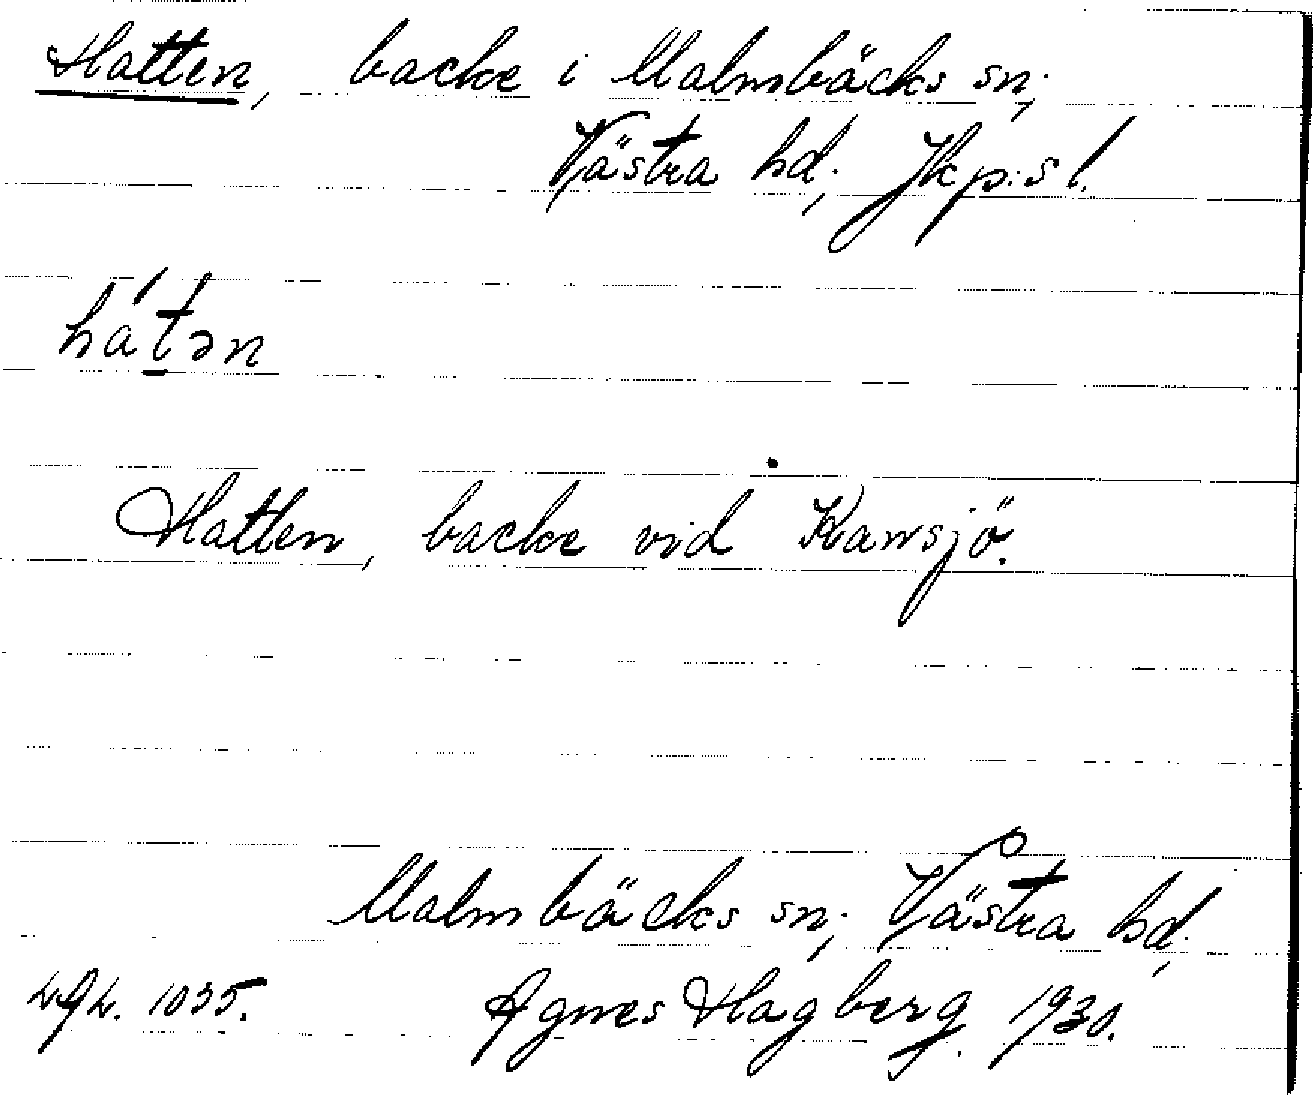 Hatten, backe i Malmbäcks sn;
Västra hd; Jkp:s l.
hát̠ən
Hatten, backe vid Kansjö.
Malmbäcks sn; Västra hd;
1035. Agnes Hagberg. 1930.